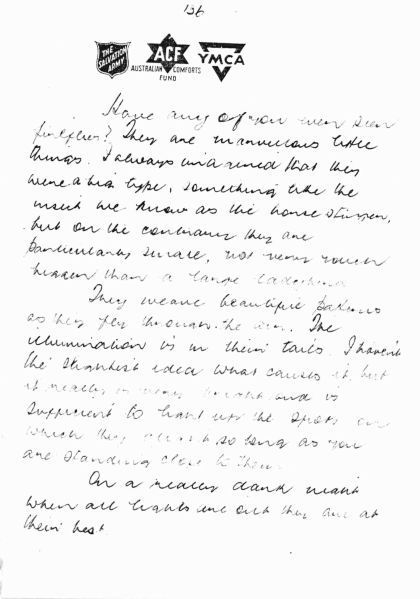 136
THE SALVATION ARMY
ACF
AUSTRALIAN COMFORTS FUND
YMCA
Have any of you ever seen
fireflies? They are marvellous little
things. I always imagined that they
were a big type, something like the
insect we know as the horse stinger,
but on the contrary they are
particularly small, not very much
bigger than a large ladybird.
They weave beautiful patterns
as they fly through the air. The
illumination is in their tails. I haven't
the slightest idea what causes it, but
it really is very bright and is
sufficient to light up the spots on
which they so long as you
are standing close to them.
On a really dark night
when all lights are out they are at
their best.